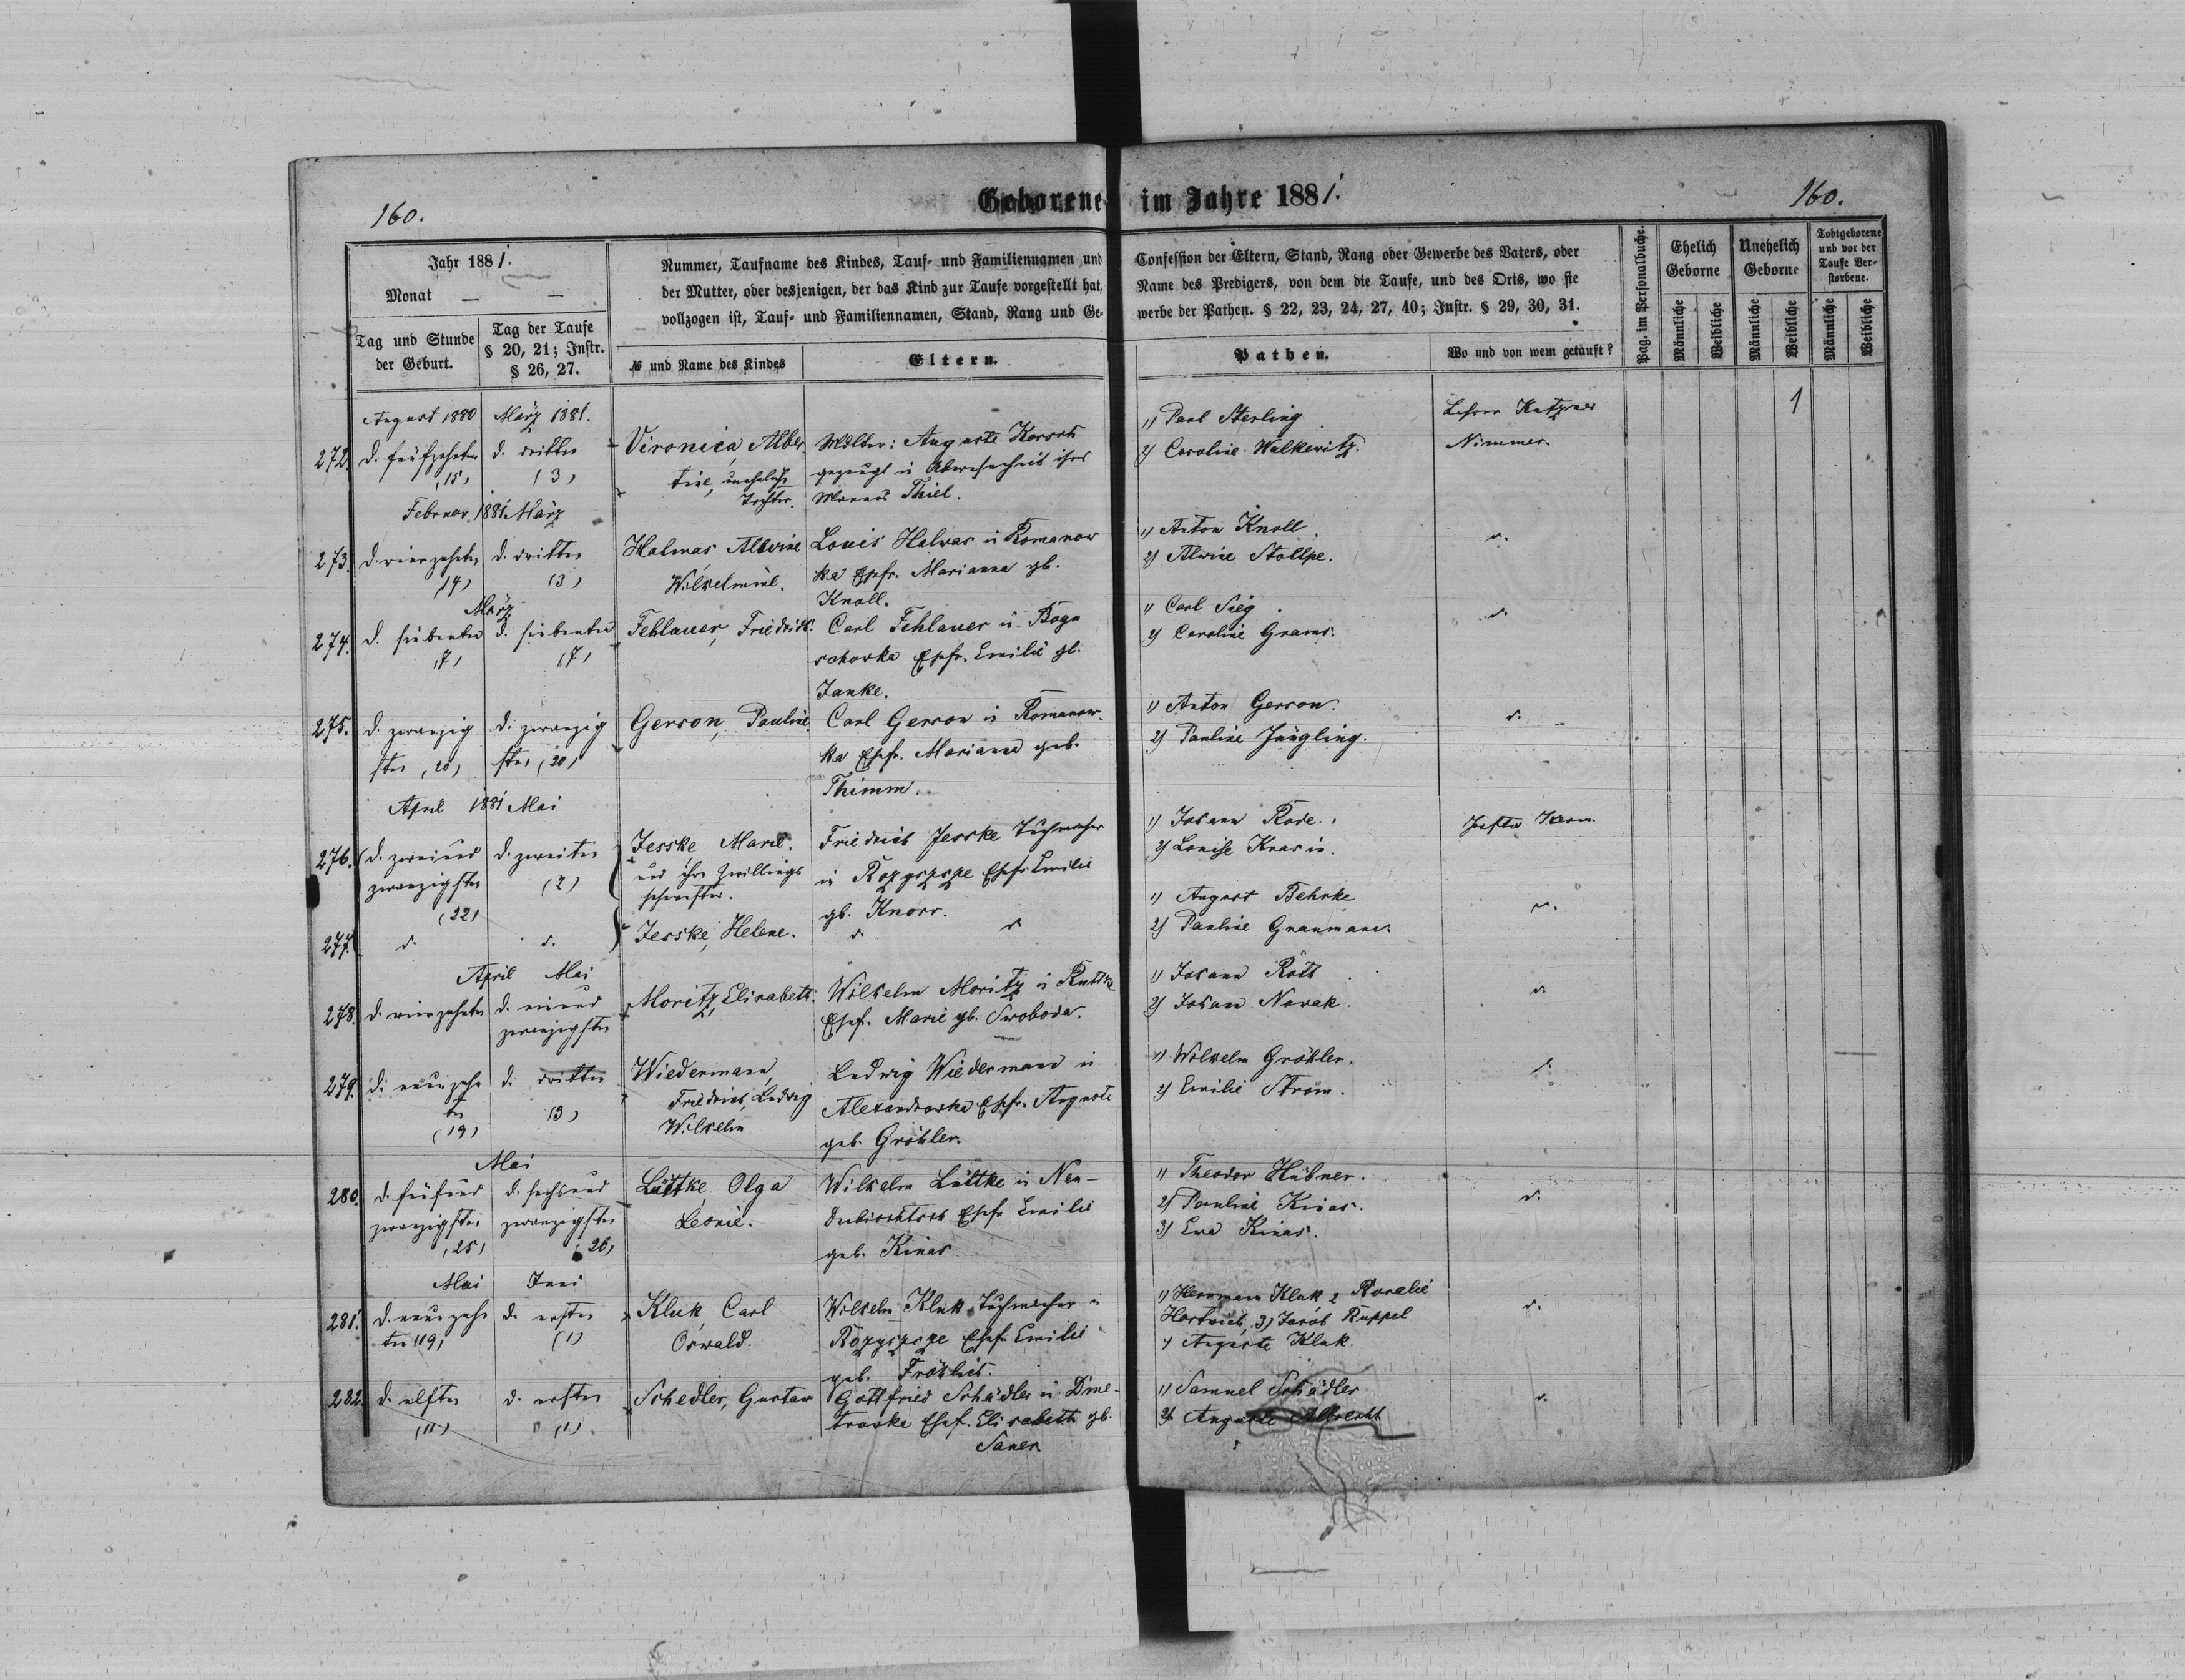 160.
Geborene im Jahre 1881.
160.
Jahr 1881.
Monat — —
Tag und Stunde der Geburt.
Tag der Taufe § 20, 21; Instr. § 26, 27.
Nummer, Taufname des Kindes, Tauf- und Familiennamen und
der Mutter, oder desjenigen, der das Kind zur Taufe vorgestellt hat,
vollzogen ist, Tauf- und Familiennamen, Stand, Rang und Ge-
№ und Name des Kindes
Eltern.
Confession der Eltern, Stand, Rang oder Gewerbe des Vaters, oder
Name des Predigers, von dem die Taufe, und des Orts, wo sie
werbe der Pathen. § 22, 23, 24, 27, 40; Instr. § 29, 30, 31.
Pathen.
Wo und von wem getauft?
Pag. im Personalbuche.
Ehelich Geborne
Unehelich Geborne
Todtgeborene und vor der Taufe Verstorbene.
Männliche
Weibliche
Männliche
Weibliche
Männliche
Weibliche
August 1880 März 1881.
272. d. fünfzehnten (15)
d. dritten (3)
Vironica, Alber
tine, uneheliche
Tochter.
Mutter: Auguste
gezeugt in Abwesenheit ihres
Mannes Thiel.
1) Paul Sterling
2) Caroline Walkewitz.
Lehrer
Nimmer
1
Februar 1881 März
273. d. vierzehnten (14)
d. dritten (3)
Halwas Alwine
Wilhelmine.
Louis Halwas in Romanow
ka Ehefr. Marianna gb.
Knoll.
1) Anton Knoll
2) Alwine Stollpe.
d.
März
274. d. siebenten (7)
d. siebenten (7)
Fehlauer, Friedrich.
Carl Fehlauer in Bogu
Ehefr. Emilie gb.
Janke.
1) Carl Sieg
2) Caroline Grams.
d.
275. d. zwanzig
sten (20)
d. zwanzig
sten (20)
Gerson, Pauline.
Carl Gerson in Romanow-
ka Ehefr. Marianna geb.
Thimm.
1) Anton Gerson.
2) Pauline Jüngling.
d.
April 1881 Mai
276. d. zweiund
zwanzigsten
(22)
d. zweiten
(2)
Jesske Marie.
und ihre Zwillings
schwester.
Friedrich Jesske Tuchmacher
in Rozyszcze Ehefr. Emilie
gb. Knorr.
1) Johann Rode.
2) Louise Krasin.
Pastor Kern
277. d.
d.
Jesske, Helene.
d. d.
1) August Behnke
2) Pauline Graumann.
d.
April Mai
278. d. vierzehnten
d. einund
zwanzigsten
Moritz, Elisabeth.
Wilhelm Moritz in
Ehefr. Marie gb. Swoboda.
1) Johann Roth
2) Johann Nowak.
d.
279. d. neunzehn
ten
(19)
d. dritten
(3)
Wiedermann,
Friedrich, Ludwig
Wilhelm
Ludwig Wiedermann in
Alexandrowka Ehefr. Auguste
geb. Gröhler.
1) Wilhelm Gröhler.
2) Emilie Strom.
d.
Mai
280. d. fünfund
zwanzigsten
(25)
d. sechsund
zwanzigsten
(26)
Lüttke, Olga
Leonie.
Wilhelm Lüttke in Neu-
Ehefr. Emilie
geb. Kinas
1) Theodor Hübner.
2) Pauline Kinas.
3) Eva Kinas.
d.
Mai Juni
281. d. neunzehn
ten (19)
d. ersten
(1)
Kluk, Carl
Oswald.
Wilhelm Kluk, Tuchmacher in
Rozyszcze Ehefr. Emilie
geb. Fröhlich.
1) Hermann Kluk 2 Rosalie
Hartwich, 3) Jacob Ruppel
4 Auguste Kluk.
d.
282. d. elften
(11)
d. ersten
(1)
Schedler, Gustav
Gottfried Schädler in Dme-
trowka Ehefr. Elisabeth gb.
Sauer
1) Samuel Schädler
2) Auguste Albrecht
d.